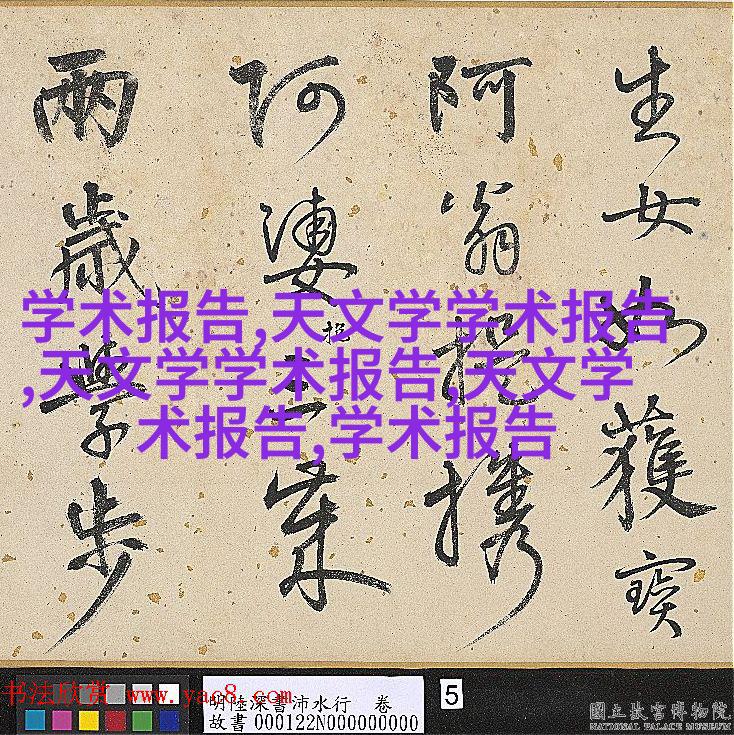 生女如獲寶
阿翁提携
阿婆
兩歲學步
学术报告,天文学学术报告
,天文学学术报告,天文学
术报告,学术报告
书法欣赏 www.yac8.com
明陸深書沛水行 卷
故書 000122N000000000
5
國立故宮博物院
NATIONAL PALACE MUSEUM